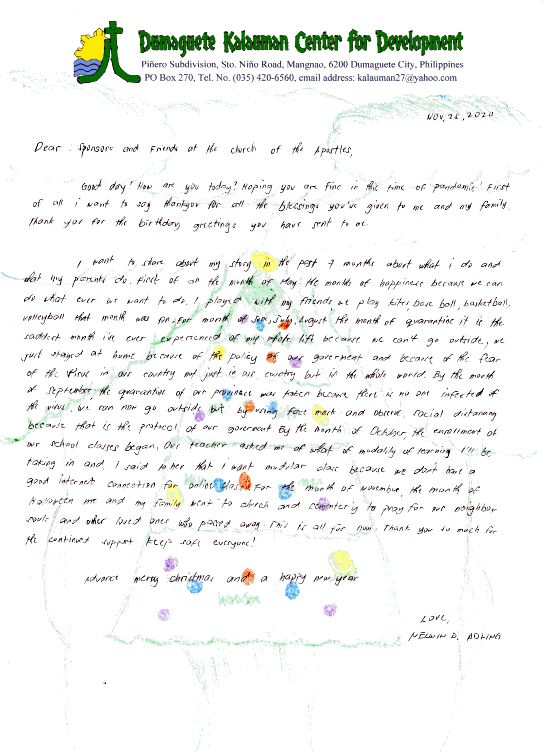 Dumaguete Kalauman Center for Development
Piñero Subdivision, Sto. Niño Road, Mangnao, 6200 Dumaguete City, Philippines
PO Box 270, Tel. No. (035) 420-6560, email address: kalauman27@yahoo.com
Nov, 26, 2020
Dear : Sponsors and Friends at the church of the Apostles,
Good day! How are you today? Hoping you are fine in this time of pandemic! First
of all i want to say thankyou for all the blessings you've given to me and my family.
Thank you for the birthday greetings you have sent to me.
I want to share about my story in the past 7 months about what i do and
what my parents do. First of all the month of May the month of happiness because we can
do what ever we want to do. I played with my friends we play kites, base ball, basketball,
volleyball that month was fun. For month of June, July, August the month of quarantine it is the
saddest month i've ever experienced of my whole life because we can't go outside, we
just stayed at home because of the policy of our goverment and because of the fear
of the virus in our country not just in our country but in the whole world. By the month
of September the quarantine of our province was taken because there is no one infected of
the virus, we can now go outside but by using face mask and observe social distancing
because that is the protocol of our goverment. By the month of October the enrollment of
our school classes began. Our teacher asked me of what of modality of learning I'll be
taking in and I said to her that I want modular class because we don't have a
good internet connection for online class. For the month of November, the month of
Halloween me and my family went to church and cementery to pray for our neighbor
souls and other loved ones who passed away. This is all for now. Thank you so much for
the continued support keep safe everyone!
Advance merry christmas and a happy new year
Love,
Nelwin D. Adling